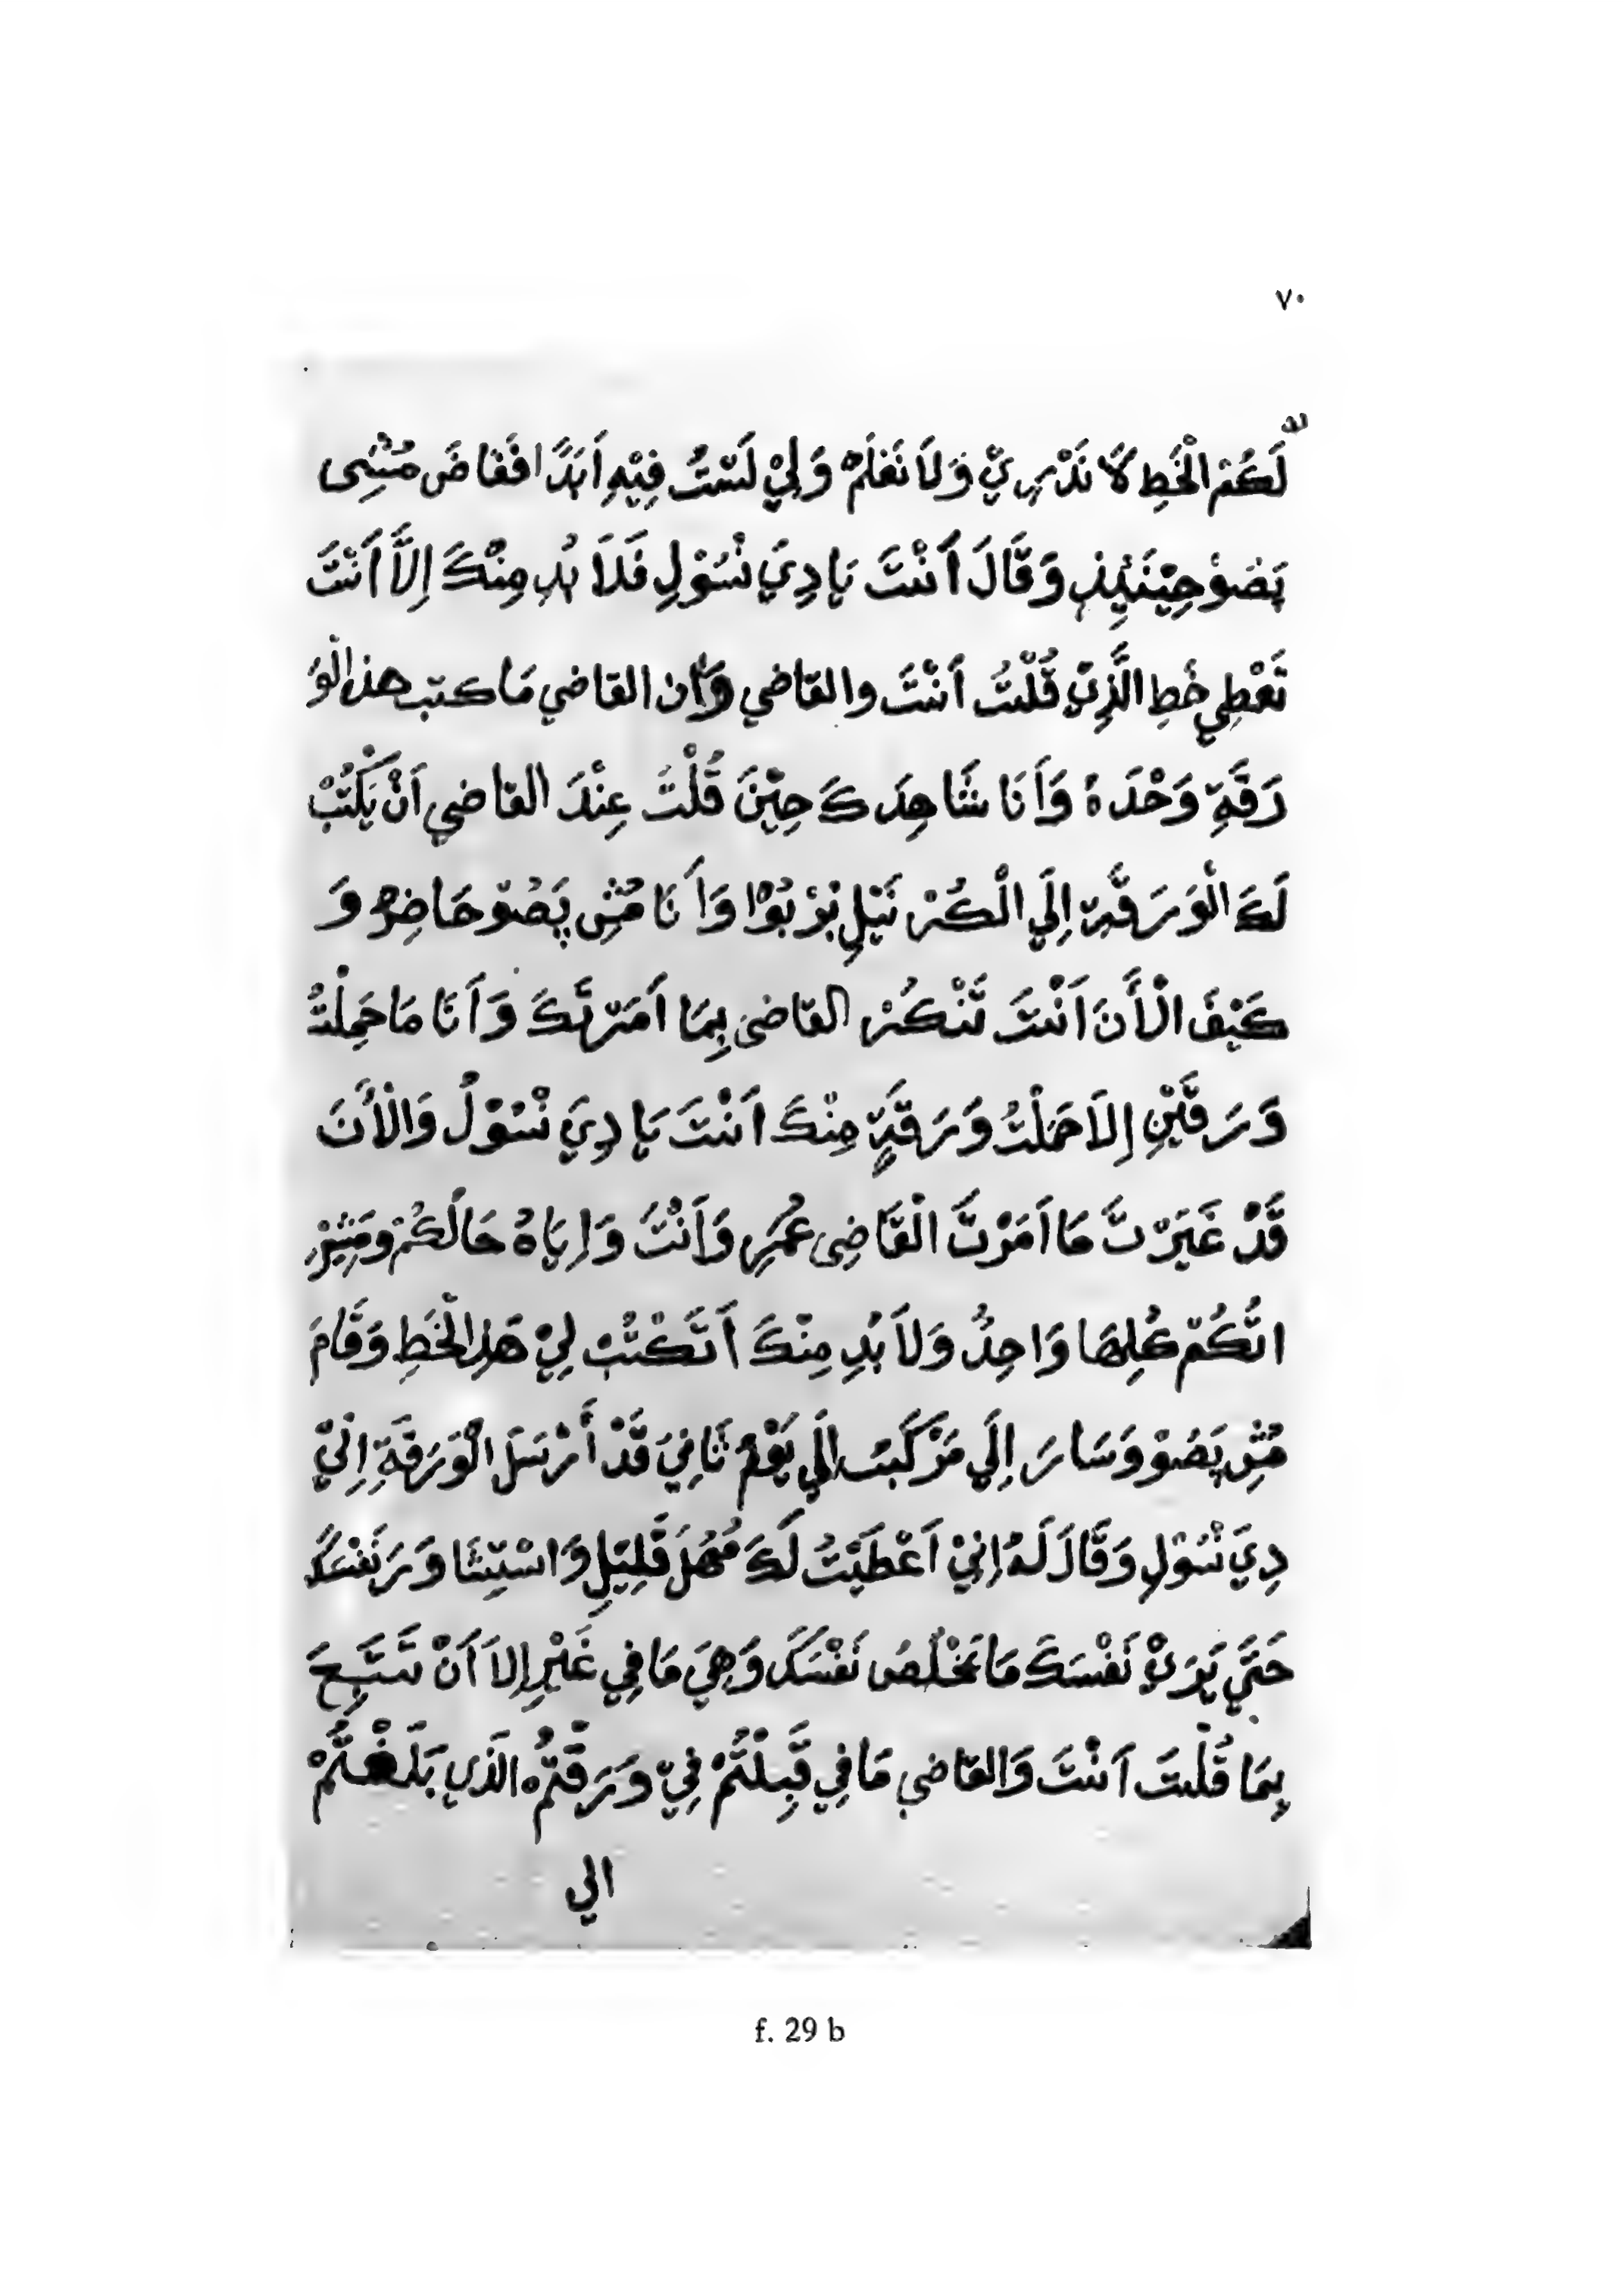 ٧٠
لَكُمْ الْخَطِ لَا نَدْرِيْ وَلَا نَعْلَمْ وَلِيْ لَسْتُ فِيْهِ اَبَدًا فَقَاضَ مُشِى
بَصَوْ حِيْنَئِذٍ وَقَالَ أَنْتَ يَا دِيَ نْسُوْلِ فَلَا بُدِ مِنْكَ إِلَّا أَنْتَ
تَعْطِي خَطِ الَّذِيْ قُلْتَ اَنْتَ والقاضي وَان القاضي مَا كتب هذ الْوَ
رَقَةِ وَحْدَهُ وَأَنَا شَاهِدَكَ حِيْنَ قُلْتَ عِنْدَ القاضي اَنْ يَكْتُبْ
لَكَ الْوَرَقَةِ إِلَي الْكُرْنَيْلِ بُرْبُوْا وَاَنَا مُشِ بَصُوْ حَاضِرْ وَ
كَيْفَ الْأَنَ اَنْتَ تَنْكُرْ القاضى بِمَا اَمَرْتَكَ وَاَنَا مَا حَمِلْتُ
وَرَقَّيْنِ إِلَا حَمَلْتُ وَرَقَةٍ مِنْكَ اَنْتَ يَا دِيَ نْسُوْلُ وَالْأَنَ
قَدْ غَيَرْتَ مَا اَمَرْتَ الْقَاضِى عُمَرِ وَاَنْتَ وَاِيَاهُ حَالَكُمْ وَمَشِيْرِ
اتُكُمْ كُلِهَا وَاحِدٌ وَلَا بُدِ مِنْكَ اَتَكْتُبْ لِيْ هَذِ الْخَطِ وَقَامَ
مُشِ بَصَوْ وَسَارَ إِلَي مَرْكَبَ الَي يَوْم ثَانِيَ قَدْ أَرْسَلَ الْوَرَقَةِ اِلَيْ
دِيَ نْسُوْلِ وَقَالَ لَهُ اِنِيْ اَعْطَيْتُ لَكَ مُهَلَ قَلِيْلِ وَاسْتِشَا وَرَ نَفْسَكَ
حَتَّي يَرَيْ نَفْسَكَ مَا تَخْلُصُ نَفْسَكَ وَهِيَ مَا فِي غَيْرِ إِلَا اَنْ تَسَتَبِحَ
بِمَا قُلْتَ اَنْتَ وَالقاضي مَا فِي قَبِلْتُمْ فِيْ وَرَقَتُمْ الَذي بَلَغْتُمْ
الي
f. 29 b